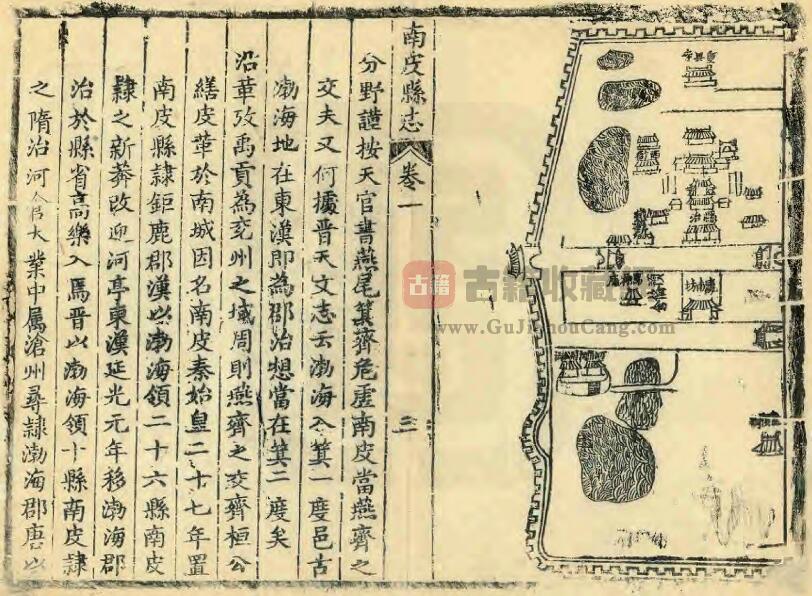 南皮縣志
卷一
三
分野謹按天官書燕尾箕齊危虛南皮當燕齊之
交夫又何據晉天文志云渤海入箕一度邑古
渤海地在東漢即為郡治想當在箕二度矣
沿革攷禹貢為兗州之域周則燕齊之交齊桓公
繕皮革於南城因名南皮秦始皇二十七年置
南皮縣隸鉅鹿郡漢以渤海領二十六縣南皮
隸之新莽改迎河亭東漢延光元年移渤海郡
治於縣省高樂入焉晉以渤海領十縣南皮隸
之隋治河大業中属滄州尋隸渤海郡唐以
縣治
古籍
古籍收藏
www.GuJiShouCang.com